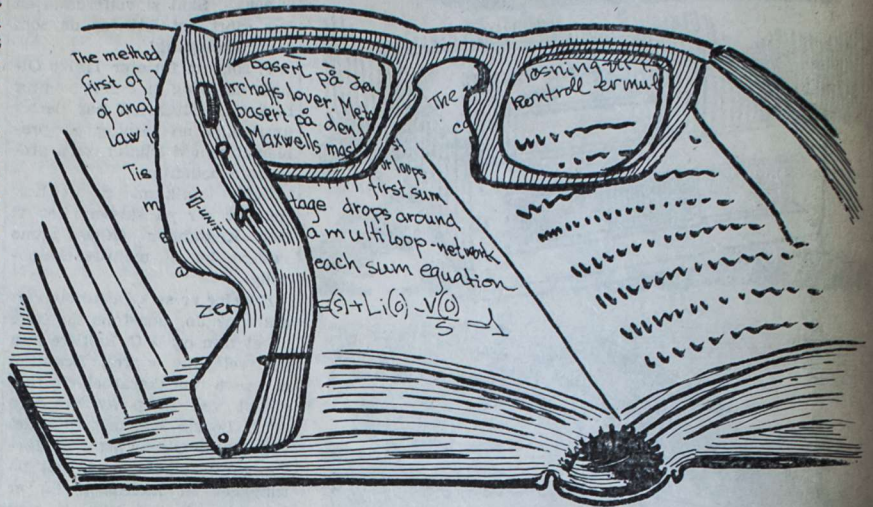 The method
first of
of anal
law i
Tis
m
TTT-unit
a
zer
basert på den
rchoffs lover. Met
basert på den f
Maxwells mas
or loops
first sum
tage drops around
a multiloop-network
each sum equation
E(s)+Li(0) - V(0)/S = 1
The
co
Løsning til
kontroll er mul